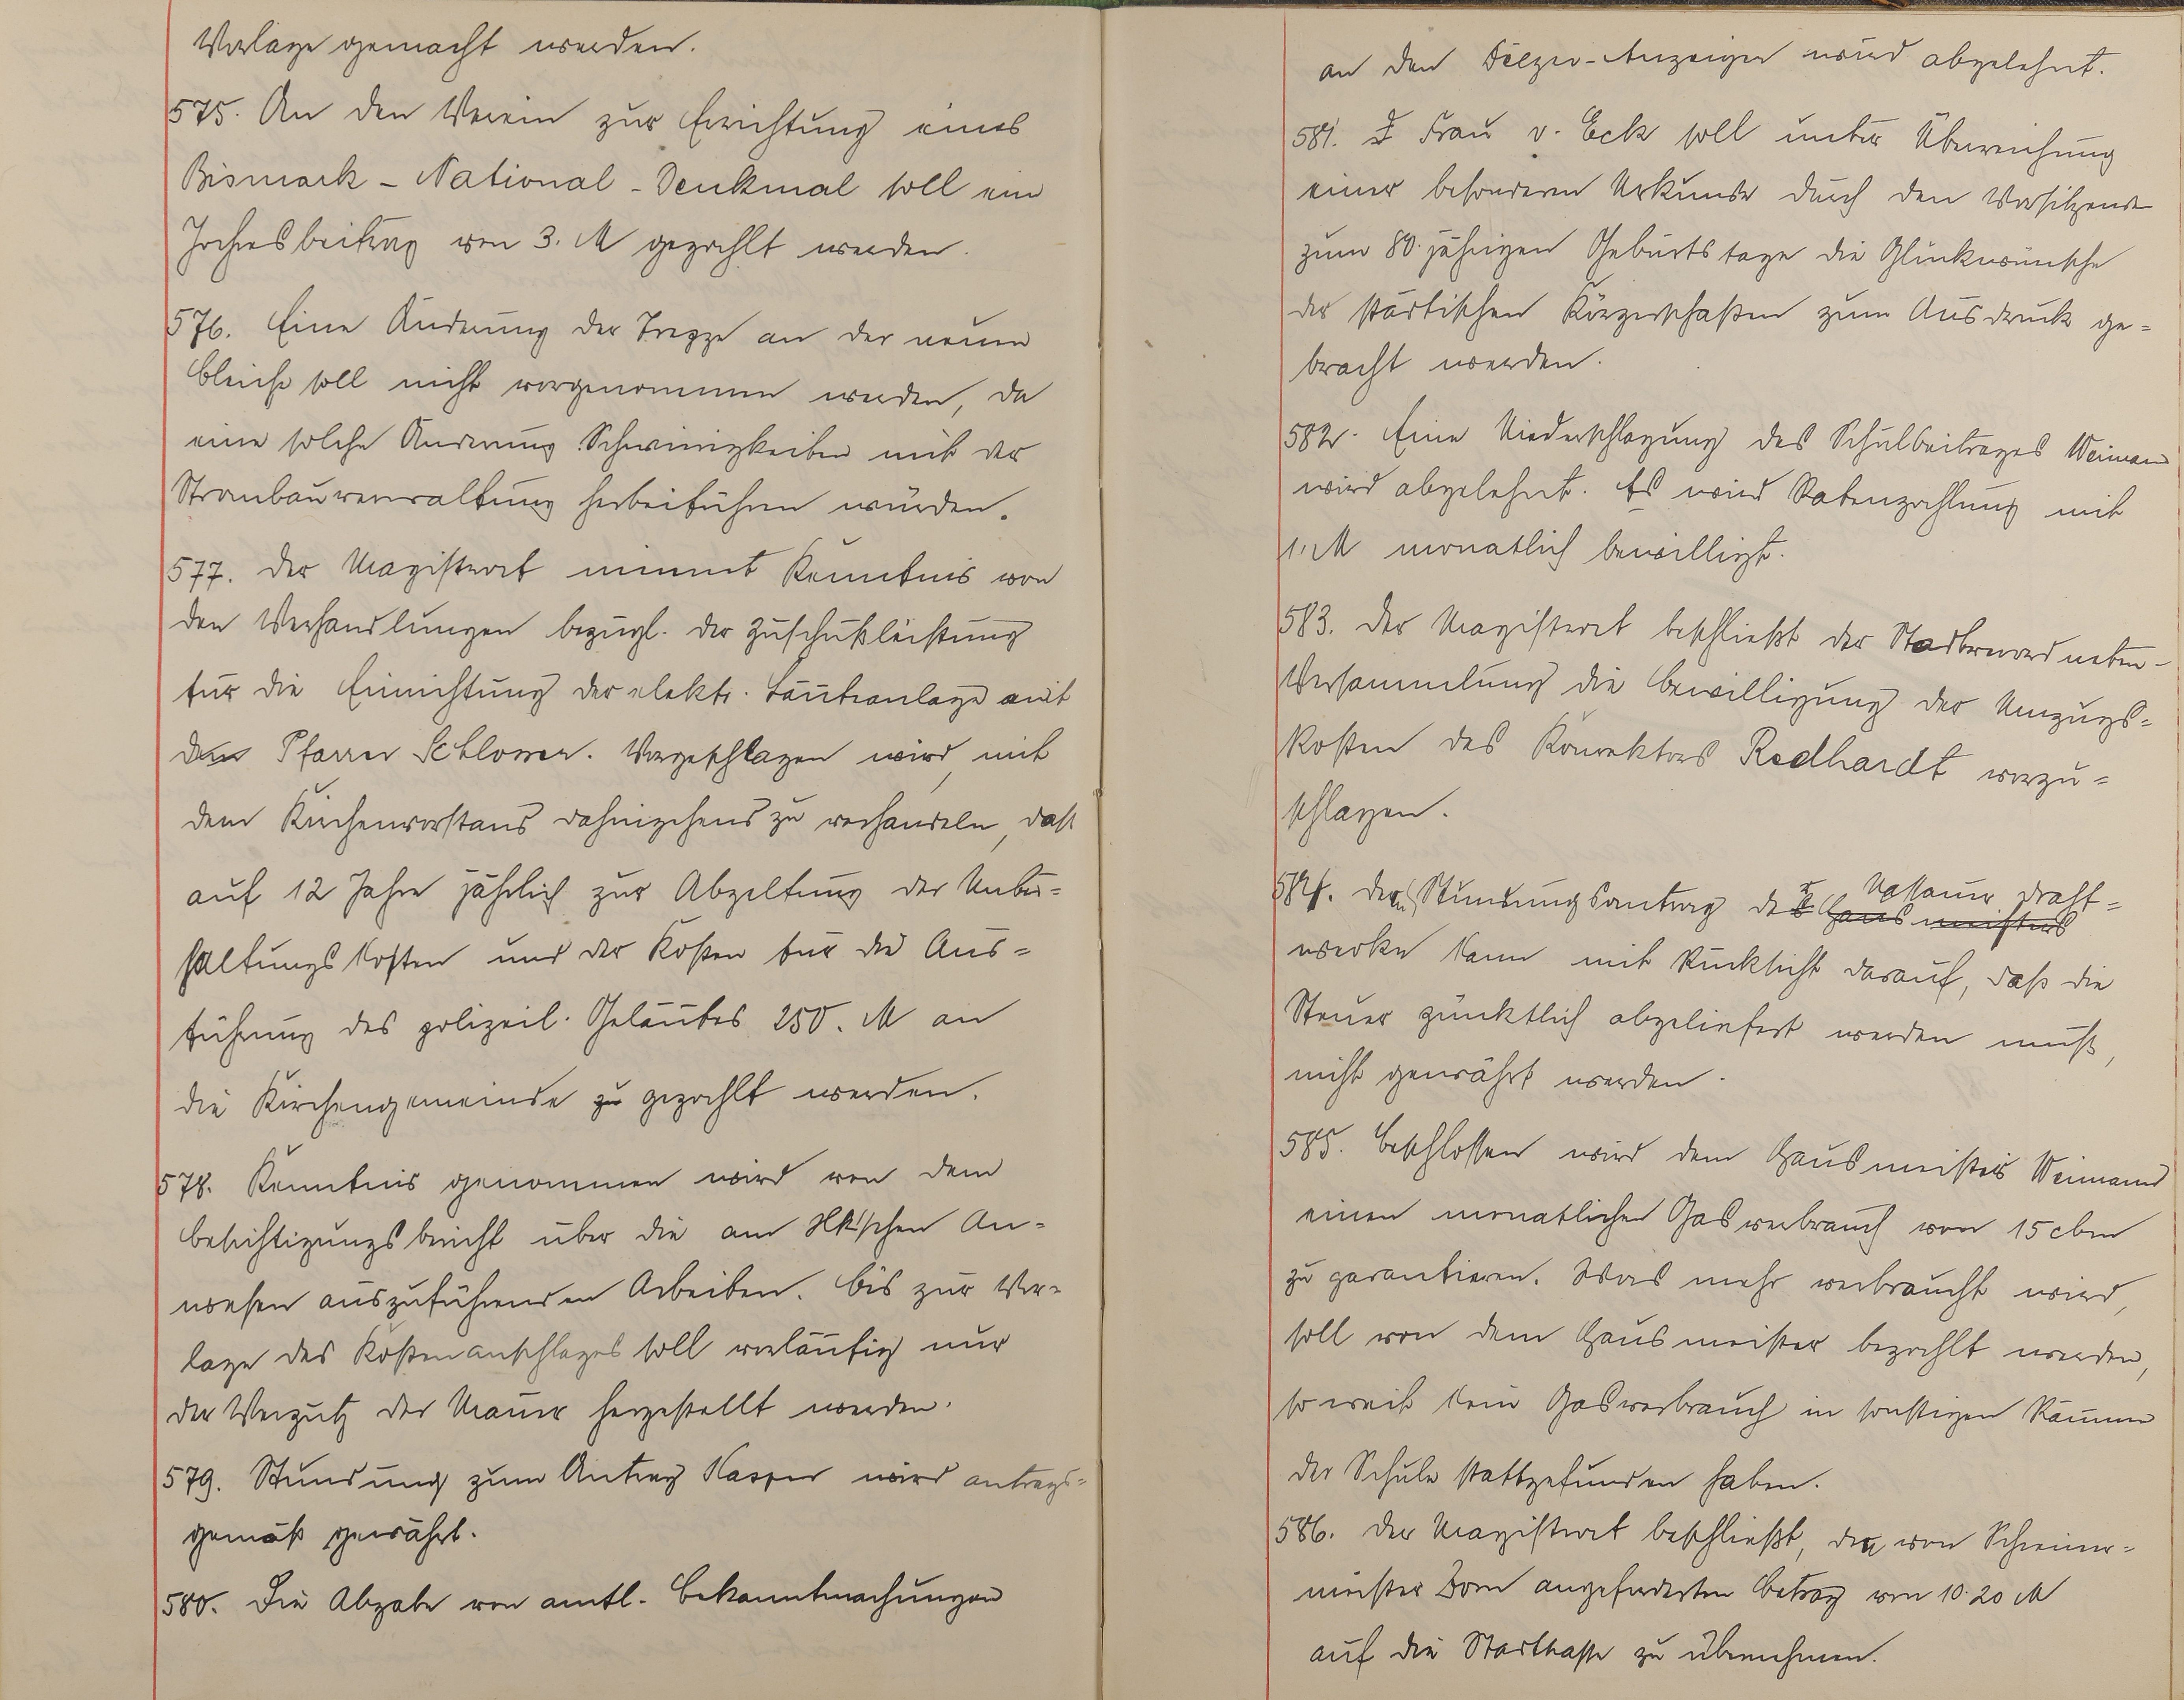 Vorlage gemacht werden.
575. An den Verein zur Errichtung eines
Bismark - National - Denkmal soll ein
Jahresbeitrag von 3. M gezahlt werden.
576. Eine Änderung der Treppe an der neuen
Bleiche soll nicht vorgenommen werden, da
eine solche Änderung Schwierigkeiten mit der
Strombauverwaltung herbeiführen würden.
577. Der Magistrat nimmt Kenntnis von
den Verhandlungen bezügl. der Zuschußleistung
für die Einrichtung der elektr. Läuteanlage mit
dem Pfarrer Schlosser. Vorgeschlagen wird, mit
dem Kirchenvorstand dahingehend zu verhandeln, daß
auf 12 Jahre jährlich zur Abgeltung der Unter-
haltungskosten und der Kosten für die Aus-
führung des polizeil. Geläutes 250. M an
die Kirchengemeinde zu gezahlt werden.
578. Kenntnis genommen wird von dem
Besichtigungsbericht über die am schen An-
wesen auszuführenden Arbeiten. Bis zur Vor-
lage des Kostenanschlages soll vorläufig nur
der Verputz der Mauer hergestellt werden.
579. Stundung zum Antrag Kasper wird antrags-
gemäß gewährt.
580. Die Abgabe von amtl. Bekanntmachungen
an den Anzeiger wird abgelehnt.
581. Frau v. Eck soll unter Überreichung
einer besonderen Urkunde durch den Vorsitzende
zum 80. jährigen Geburtstage die Glückwünsche
der städtischen Körperschaften zum Ausdruck ge-
bracht werden.
582. Eine Niederschlagung des Schulbeitrages Weimann
wird abgelehnt. Es wird Ratenzahlung mit
1. M monatlich bewilligt.
583. Der Magistrat beschließt der Stadtverordneten-
Versammlung die Bewilligung der Umzugs-
kosten des Konrektors Redhardt vorzu-
schlagen.
584. Der Stundungsantrag der Hausmeisters Nassauer Draht-
werke kann mit Rücksicht darauf, daß die
Steuer pünktlich abgeliefert werden muß,
nicht gewährt werden.
585. Beschlossen wird dem Hausmeister Weimann
einen monatlichen Gasverbrauch von 15 cbm
zu garantieren. Was mehr verbraucht wird,
soll von dem Hausmeister bezahlt werden,
so weit kein Gasverbrauch in sonstigen Räumen
der Schule stattgefunden haben.
586. Der Magistrat beschließt, den von Schreiner-
meister Dorn angeforderten Betrag von 10.20 M
auf die Stadtkasse zu übernehmen.